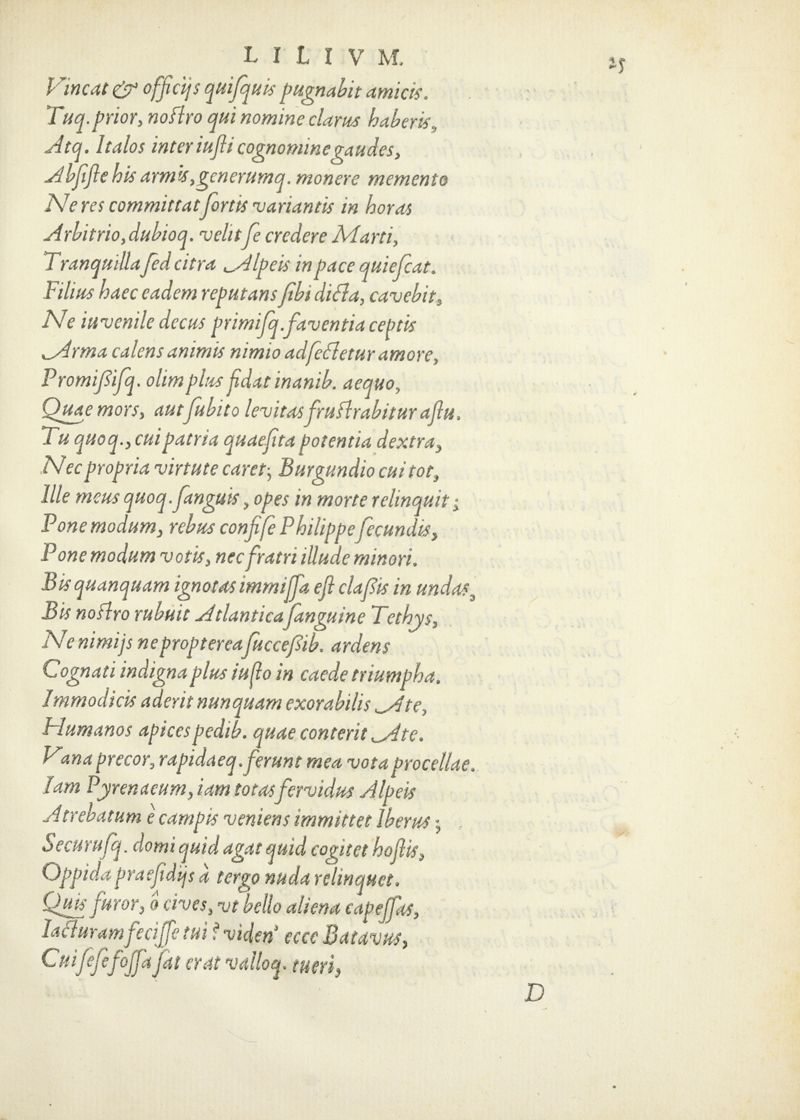 LILIVM. 25
Vincat & officijs quisquis pugnabit amicis.
Tuq. prior, nostro qui nomine clarus haberis,
Atq. Italos inter iusti cognomine gaudes,
Absiste his armis, generumq. monere memento
Ne res committat fortis variantis in horas
Arbitrio, dubioq. velit se credere Marti,
Tranquilla sed citra Alpeis in pace quiescat.
Filius haec eadem reputans sibi dicta, cavebit,
Ne iuvenile decus primisq. faventia ceptis
Arma calens animis nimio adfectetur amore,
Promissisq. olim plus fidat inanib. aequo,
Quae mors, aut subito levitas frustrabitur astu.
Tu quoq., cui patria quaesita potentia dextra,
Nec propria virtute caret; Burgundio cui tot,
Ille meus quoq. sanguis, opes in morte relinquit;
Pone modum, rebus confise Philippe secundis,
Pone modum votis, nec fratri illude minori.
Bis quanquam ignotas immissa est classis in undas,
Bis nostro rubuit Atlantica sanguine Tethys,
Ne nimijs ne propterea successib. ardens
Cognati indigna plus iusto in caede triumpha.
Immodicis aderit nunquam exorabilis Ate,
Humanos apices pedib. quae conterit Ate.
Vana precor, rapidaeq. ferunt mea vota procellae.
Iam Pyrenaeum, iam totas fervidus Alpeis
Atrebatum è campis veniens immittet Iberus;
Securusq. domi quid agat quid cogitet hostis,
Oppida praesidijs à tergo nuda relinquet.
Quis furor, ô cives, vt bello aliena capessas,
Iacturam fecisse tui? viden' ecce Batavus,
Cui sese fossa sat erat valloq. tueri,
D